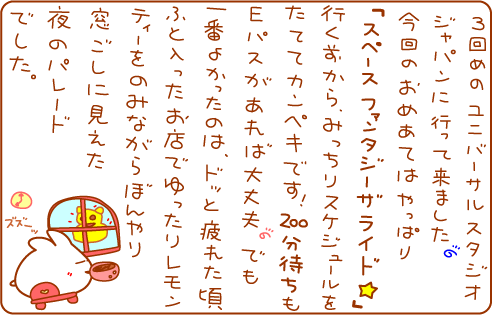 3回めのユニバーサルスタジオ
ジャパンに行って来ました
今回のおめあてはやっぱり
「スペースファンタジーザライド☆」
行く前から、みっちりスケジュールを
たててカンペキです！200分待ちも
Eパスがあれば大丈夫 でも
一番よかったのは、ドッと疲れた頃
ふと入ったお店でゆったりレモン
ティーをのみながらぼんやり
窓ごしに見えた
夜のパレード
でした。
ズズーッ